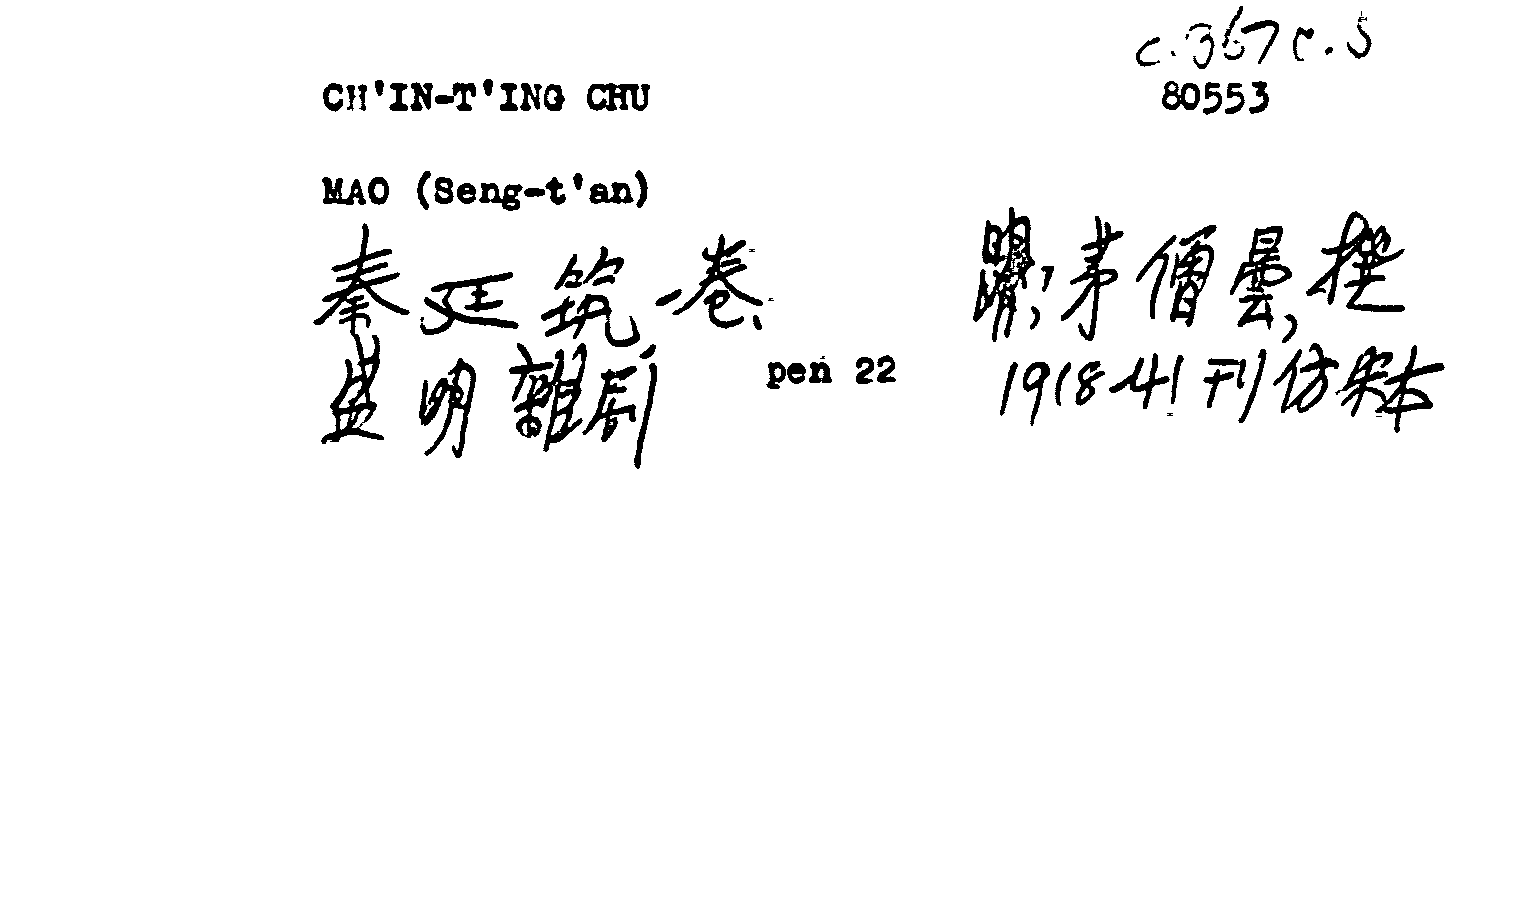 c.367 c.5
CH'IN-T'ING CHU 80553
MAO (Seng-t'an)
秦廷筑一卷、 明,茅僧曇,撰
盛明雜劇 pen 22 1918-41刊仿宋本